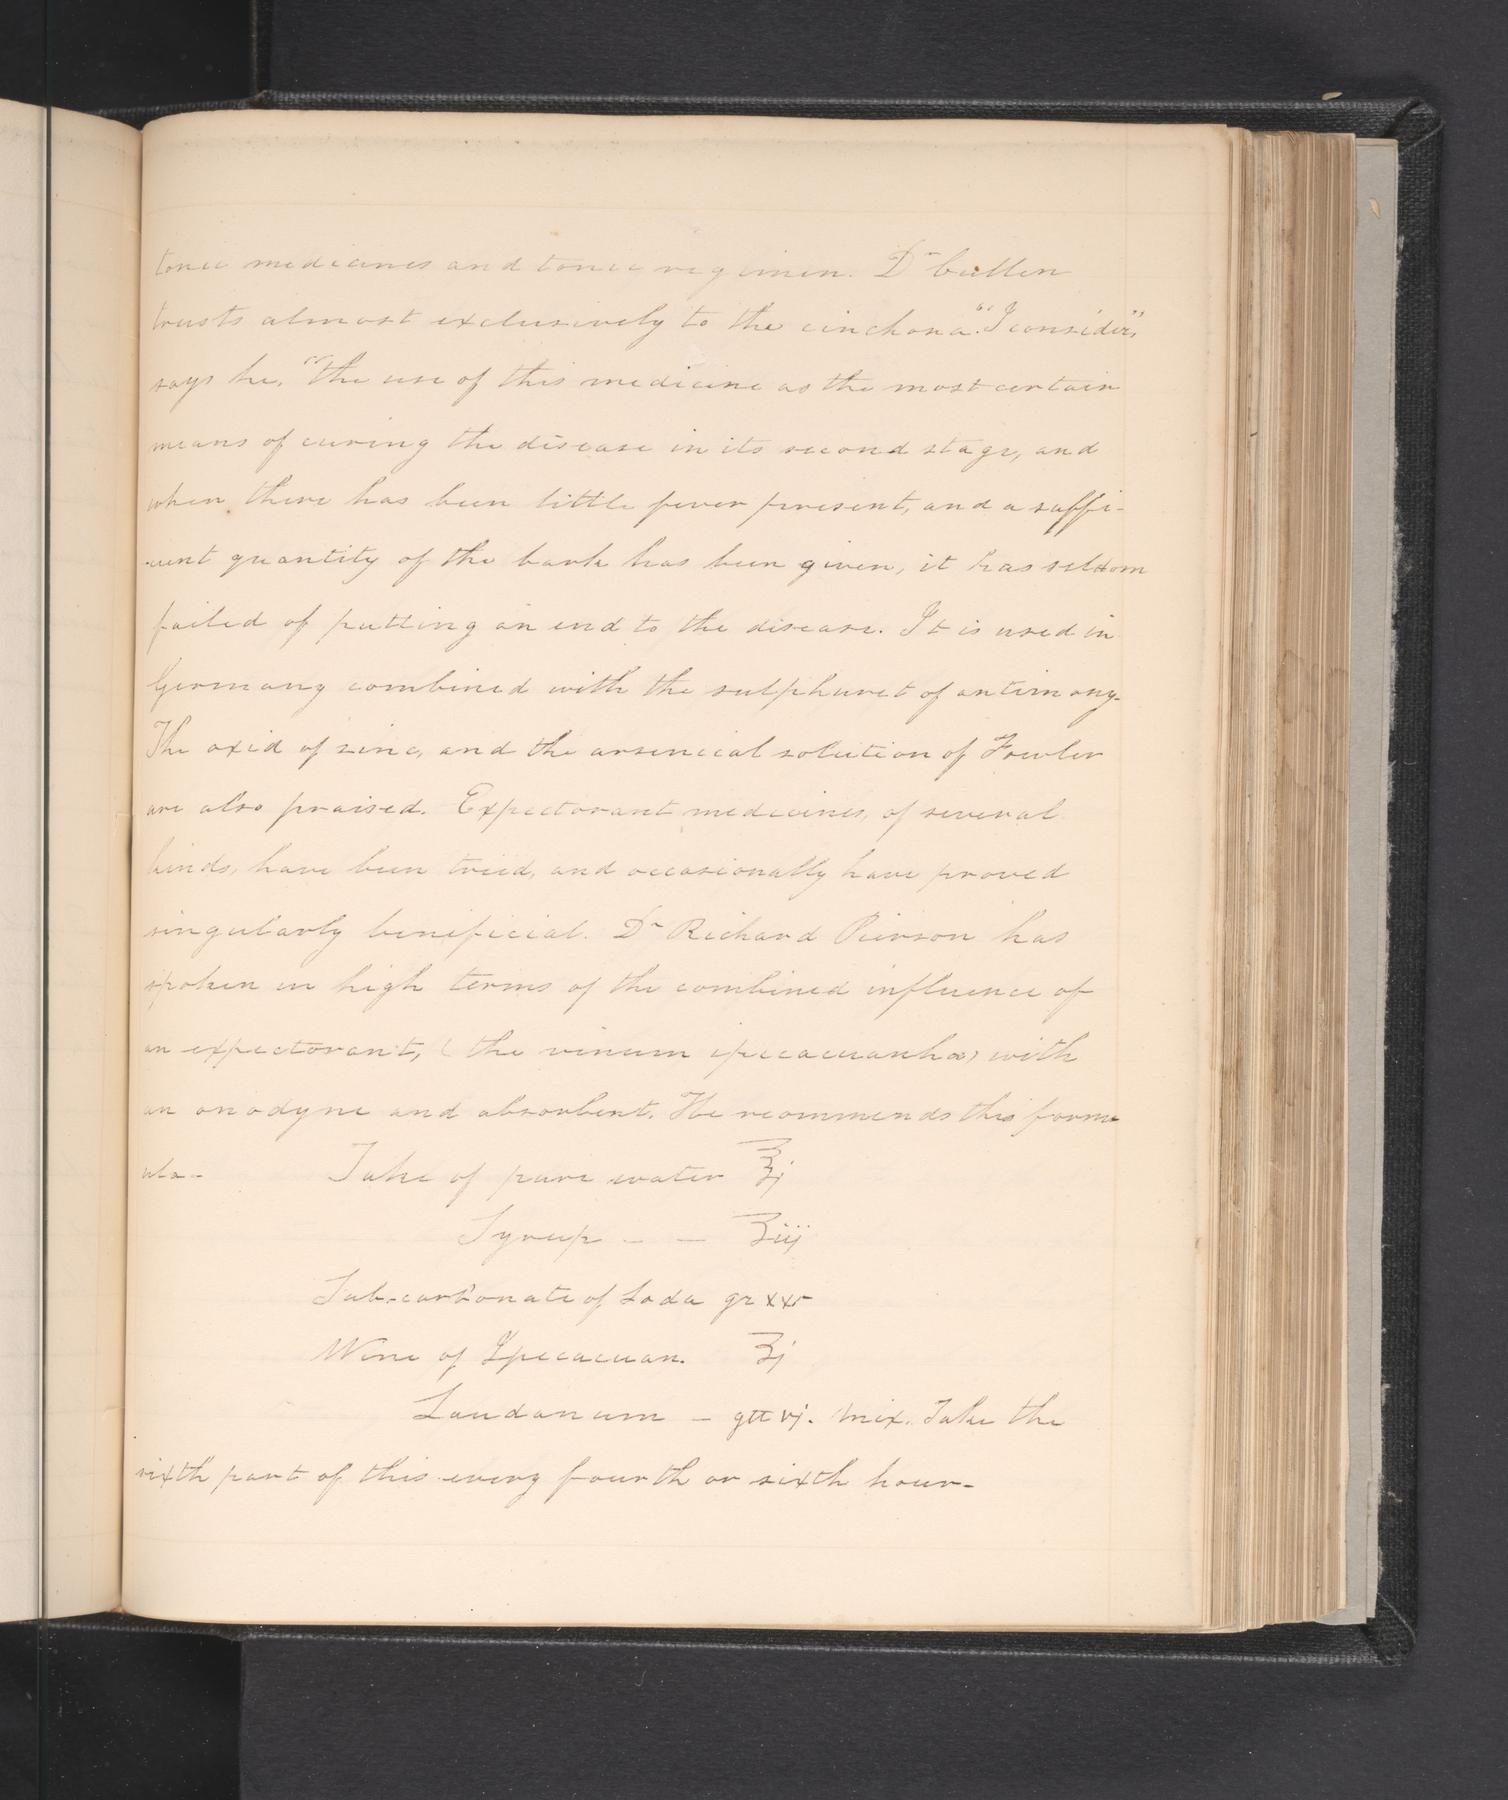 tonic medicines and tonic regimen. Dr Cullen
trusts almost exclusively to the cinchona. "I consider",
says he, "the use of this medicine as the most certain
means of curing the disease in its second stage, and
when there has been little fever present, and a suffi-
-cient quantity of the bark has been given, it has seldom
failed of putting an end to the disease. It is used in
Germany combined with the sulphuret of antimony.
The oxid of zinc, and the arsenical solution of Fowler
are also praised. Expectorant medicines, of several
kinds, have been tried, and occasionally have proved
singularly beneficial. Dr Richard Pierson has
spoken in high terms of the combined influence of
an expectorant, (the vinum ipecacuanhæ) with
an anodyne and absorbent. He recommends this form
ula- Take of pure water ℥j
Syrup - - ʒiij
Sub-carbonate of Soda gr xxv
Wine of Ipecacuan. ʒj
Laudanum - gtt vj. Mix. Take the
sixth part of this every fourth or sixth hour-